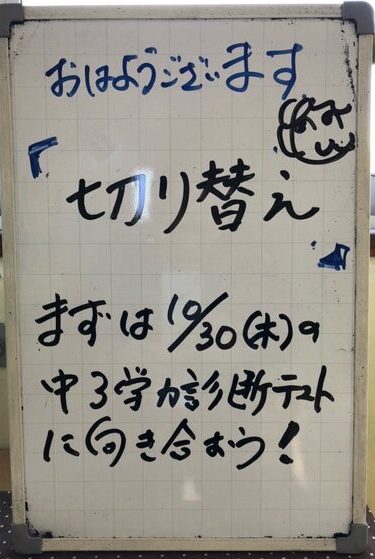 おはようございます
「
切り替え
」
まずは10/30(木)の
中3学力診断テスト
に向き合おう!